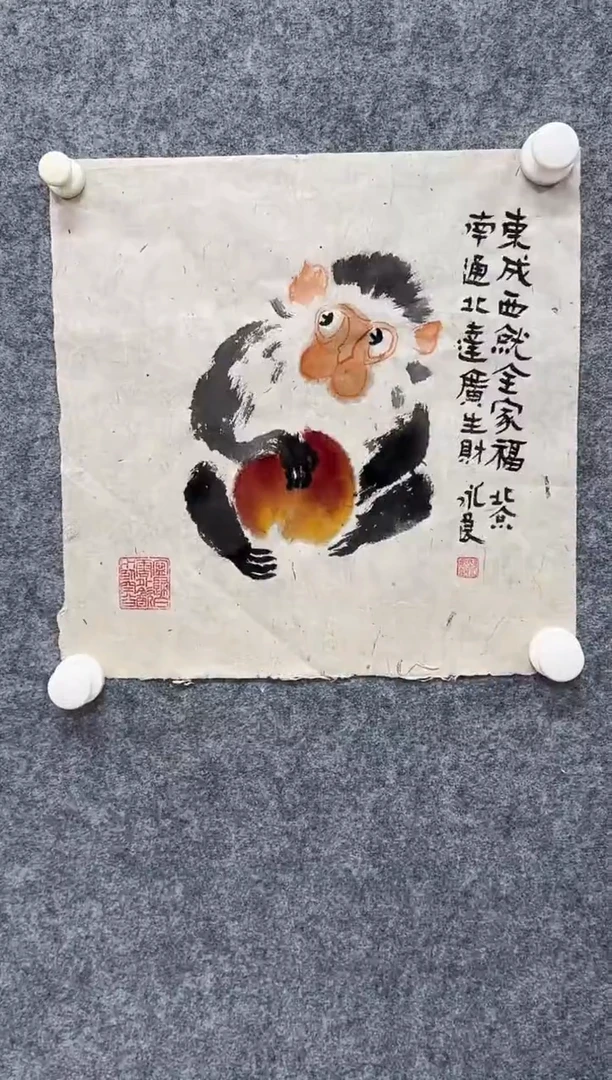 東成西就全家福 北京
南通北達廣生財 永良